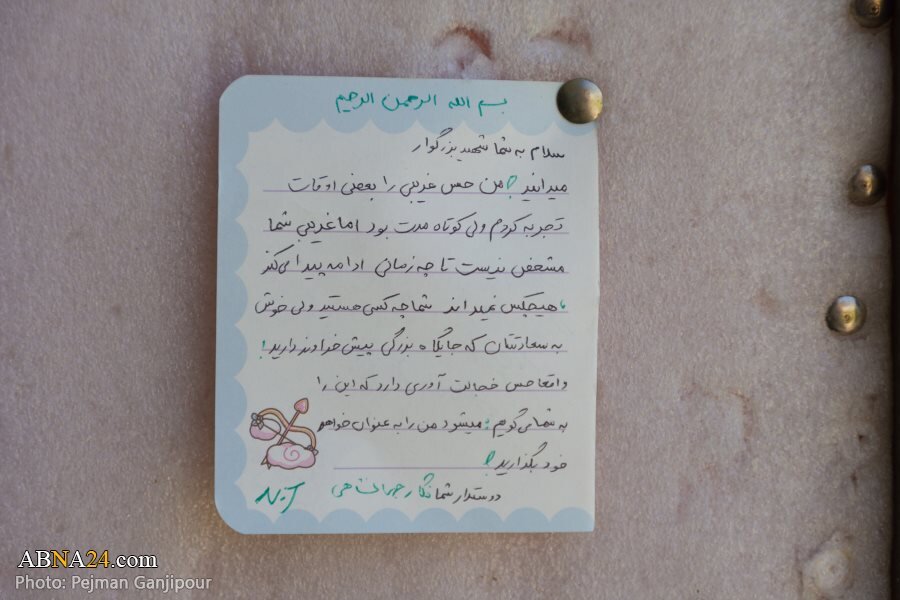 بسم الله الرحمن الرحیم
سلام به شما شهید بزرگوار
میدانید؟ من حس غریبی را بعضی اوقات
تجربه کردم ولی کوتاه مدت بود اما غریبی شما
مشخص نیست تا چه زمانی ادامه پیدا می‌کند
، هیچکس نمیداند شما چه کسی هستید ولی خوش
به سعادتتان که جایگاه بزرگی پیش خداوند دارید!
واقعا حس خجالت آوری دارد که این را
به شما می‌گویم: میشود من را به عنوان خواهر
خود بگذارید؟
دوستدار شما نگار جهانشاهی
N.J
ABNA24.com
Photo: Pejman Ganjipour